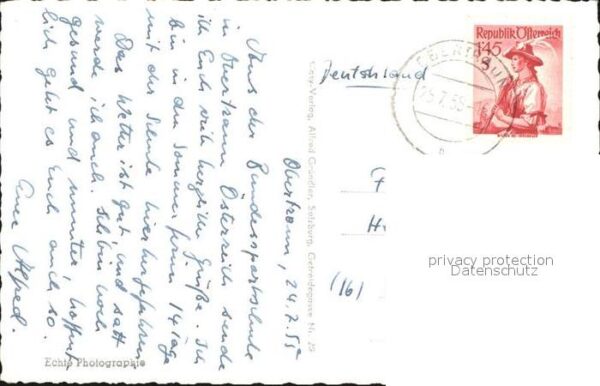 Obertraun, 24.7.55
Von der Bundessportschule
in Obertraun Österreich sende
ich Euch viele herzliche Grüße. Ich
bin in den Sommerferien 14 Tage
mit der Schule hierhergefahren.
Das Wetter ist gut, und satt
werde ich auch. Ich bin noch
gesund und munter, hoffent-
lich geht es Euch auch so.
Euer Alfred.
Echte Photographie
Cosy-Verlag, Alfred Gründler, Salzburg, Getreidegasse Nr. 22
Deutschland
Republik Österreich
1'45
S
25.7.55
F
H
(16)
privacy protection
Datenschutz